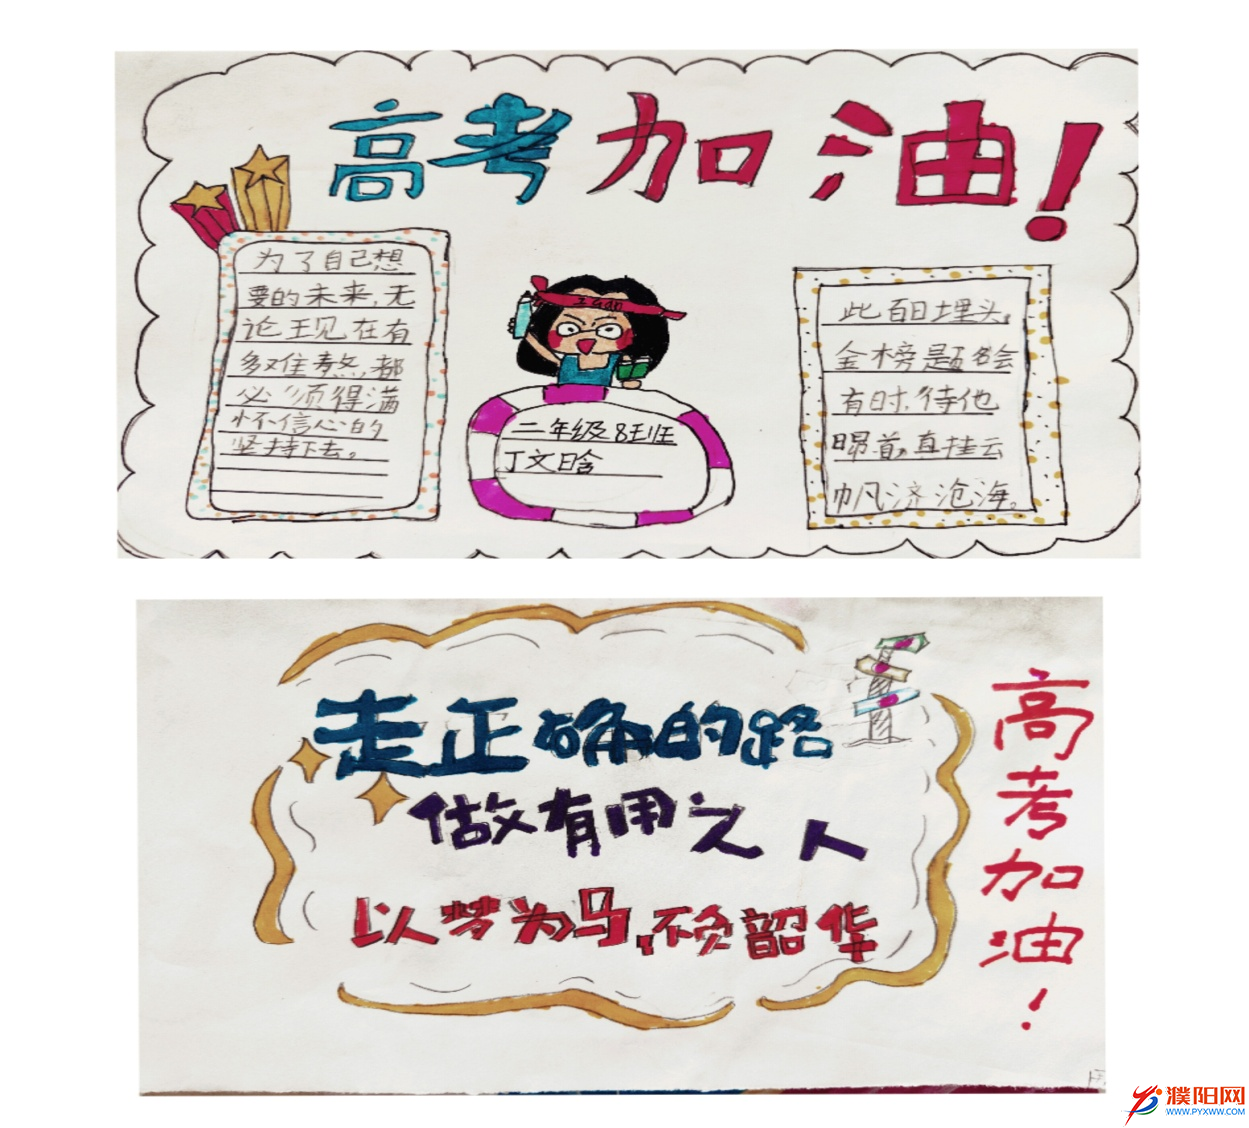 高考加油！
为了自己想
要的未来，无
论王见在有
多难熬，都
必须得满
怀信心的
坚持下去。
二年级8班
丁文晗
此百日埋头，
金榜题名会
有时，待他
昂首，直挂云
帆济沧海。
走正确的路
做有用之人
以梦为马，不负韶华
高考加油！
濮阳网
WWW.PYXWW.COM